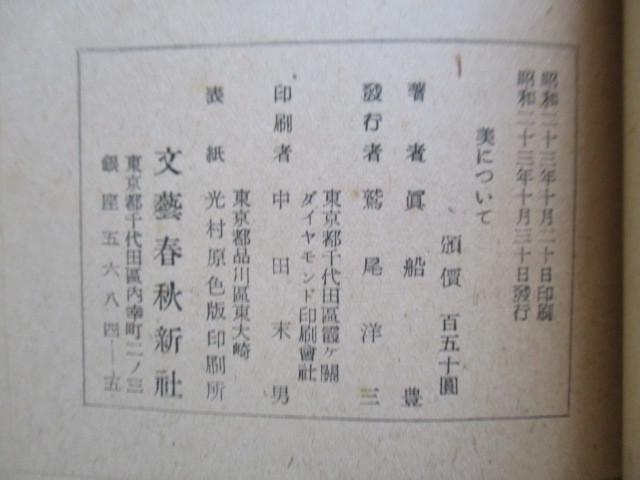 昭和二十三年十月二十日印刷
昭和二十三年十月三十日發行
美について
頒價 百五十圓
著者 眞船豊
發行者 鷲尾洋三
東京都千代田區霞ヶ關
ダイヤモンド印刷會社
印刷者 中田末男
東京都品川區東大崎
表紙 光村原色版印刷所
文藝春秋新社
東京都千代田區內幸町二ノ三
銀座五六八四—五